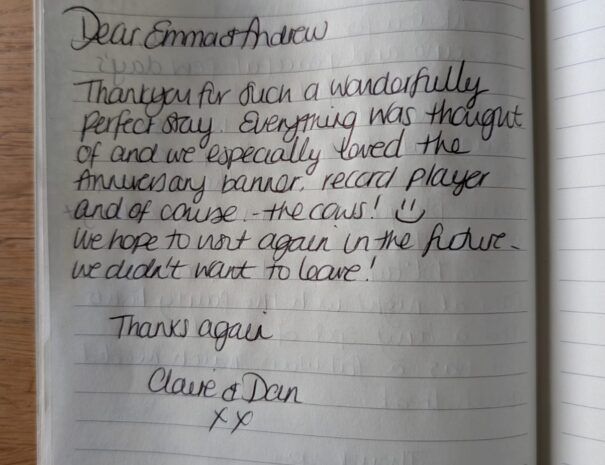 Dear Emma & Andrew
Thankyou for such a wonderfully
perfect stay. Everything was thought
of and we especially loved the
Anniversary banner, record player
and of course - the cows! ☺
We hope to visit again in the future -
we didn't want to leave!
Thanks again
Claire & Dan
xx